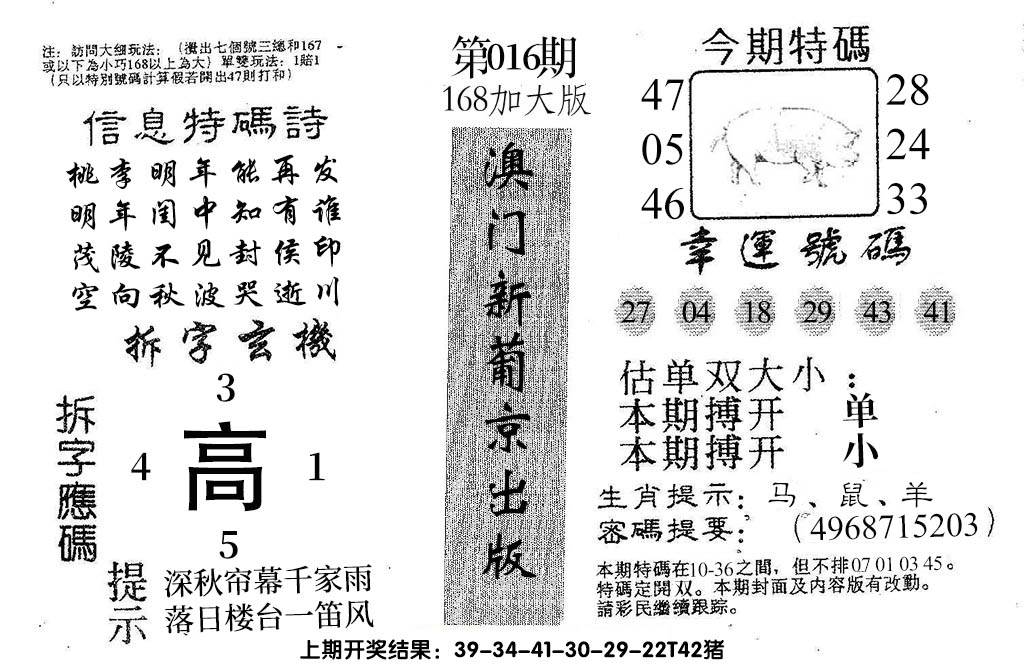 注：訪問大细玩法：(攪出七個號三總和167
或以下為小巧168以上為大) 單雙玩法：1賠1
(只以特別號碼計算假若開出47則打和)
信息特碼詩
桃李明年能再发
明年闺中知有谁
茂陵不见封侯印
空向秋波哭逝川
拆字玄機
拆字應碼
3
4 高 1
5
提示
深秋帘幕千家雨
落日楼台一笛风
第016期
168加大版
澳门新葡京出版
今期特碼
47 28
05 24
46 33
幸運號碼
27 04 18 29 43 41
估单双大小：
本期搏开 单
本期搏开 小
生肖提示：马、鼠、羊
密碼提要：(4968715203)
本期特碼在10-36之間，但不排07 01 03 45。
特碼定開双。本期封面及内容版有改動。
請彩民繼續跟踪。
上期开奖结果：39-34-41-30-29-22T42猪